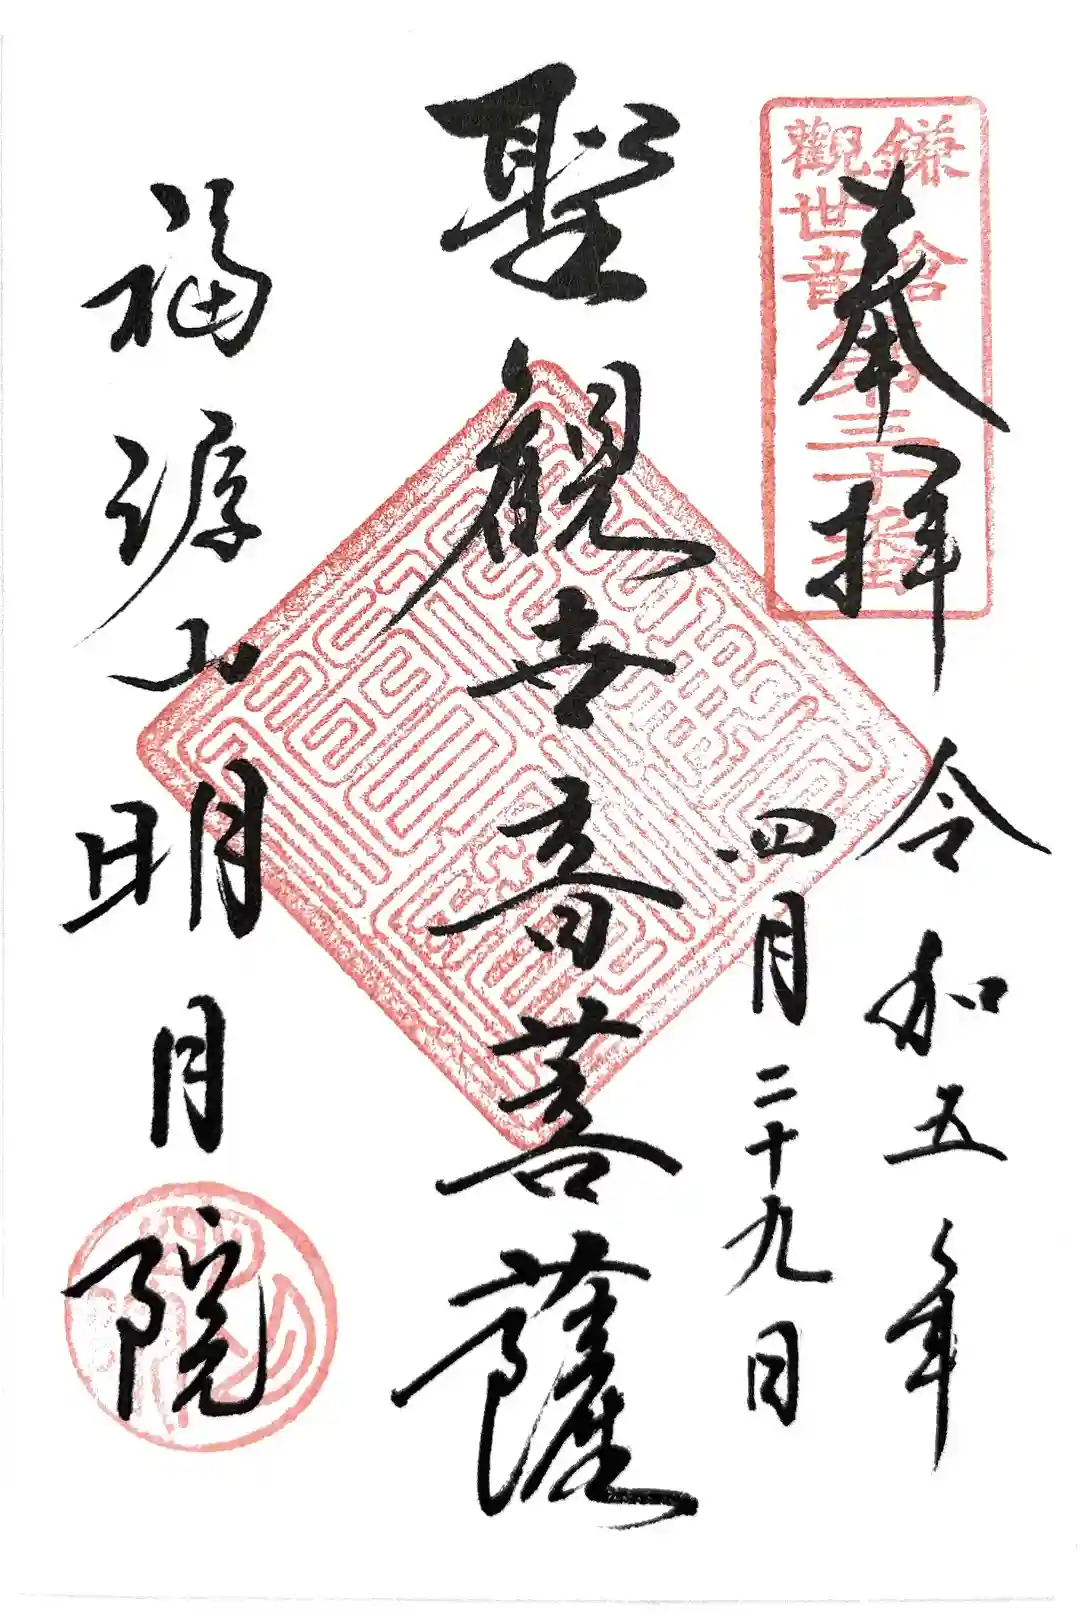 奉拝
令和五年
四月二十九日
聖観世音菩薩
福源山明月院
鎌倉第三十番
観世音